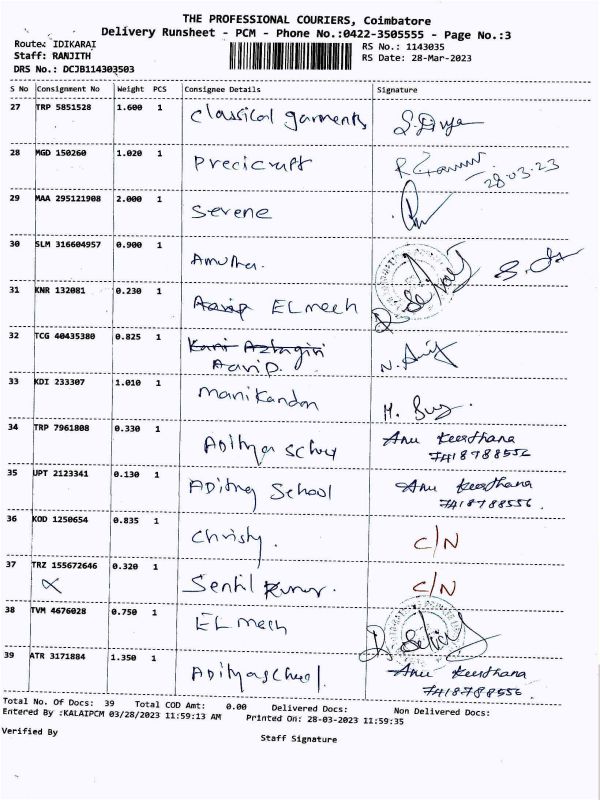 THE PROFESSIONAL COURIERS, Coimbatore
Delivery Runsheet - PCM - Phone No.:0422-3505555 - Page No.:3
Route: IDIKARAI
RS No.: 1143035
Staff: RANJITH
RS Date: 28-Mar-2023
DRS No.: DCJB114303503
S No Consignment No Weight PCS Consignee Details Signature
27 TRP 5851528 1.600 1 Classical garments
28 MGD 150260 1.020 1 Precicraft 28.03.23
29 MAA 295121908 2.000 1 Serene
30 SLM 316604957 0.900 1 Amutha.
31 KNR 132081 0.230 1 EL mech
32 TCG 40435380 0.825 1 Kani Azhagiri
33 KDI 233307 1.010 1 manikandan
34 TRP 7961808 0.330 1 Anu Keerthana
7418788556
35 UPT 2123341 0.130 1 School Anu Keerthana
7418788556.
36 KOD 1250654 0.835 1 Christy. C/N
37 TRZ 155672646 0.320 1 Sentil Kumar. C/N
38 TVM 4676028 0.750 1 EL mech
39 ATR 3171884 1.350 1 Anu Keerthana
7418788556
Total No. Of Docs: 39 Total COD Amt: 0.00 Delivered Docs: Non Delivered Docs:
Entered By :KALAIPCM 03/28/2023 11:59:13 AM Printed On: 28-03-2023 11:59:35
Verified By
Staff Signature